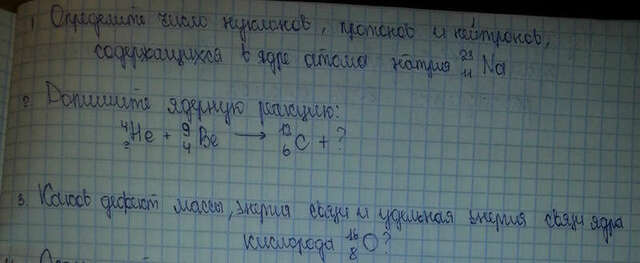 1. Определите число нуклонов, протонов и нейтронов,
содержащихся в ядре атома натрия ²³₁₁Na
2. Допишите ядерную реакцию:
⁴₂He + ⁹₄Be → ¹²₆C + ?
3. Каков дефект массы, энергия связи и удельная энергия связи ядра
кислорода ¹⁶₈O?